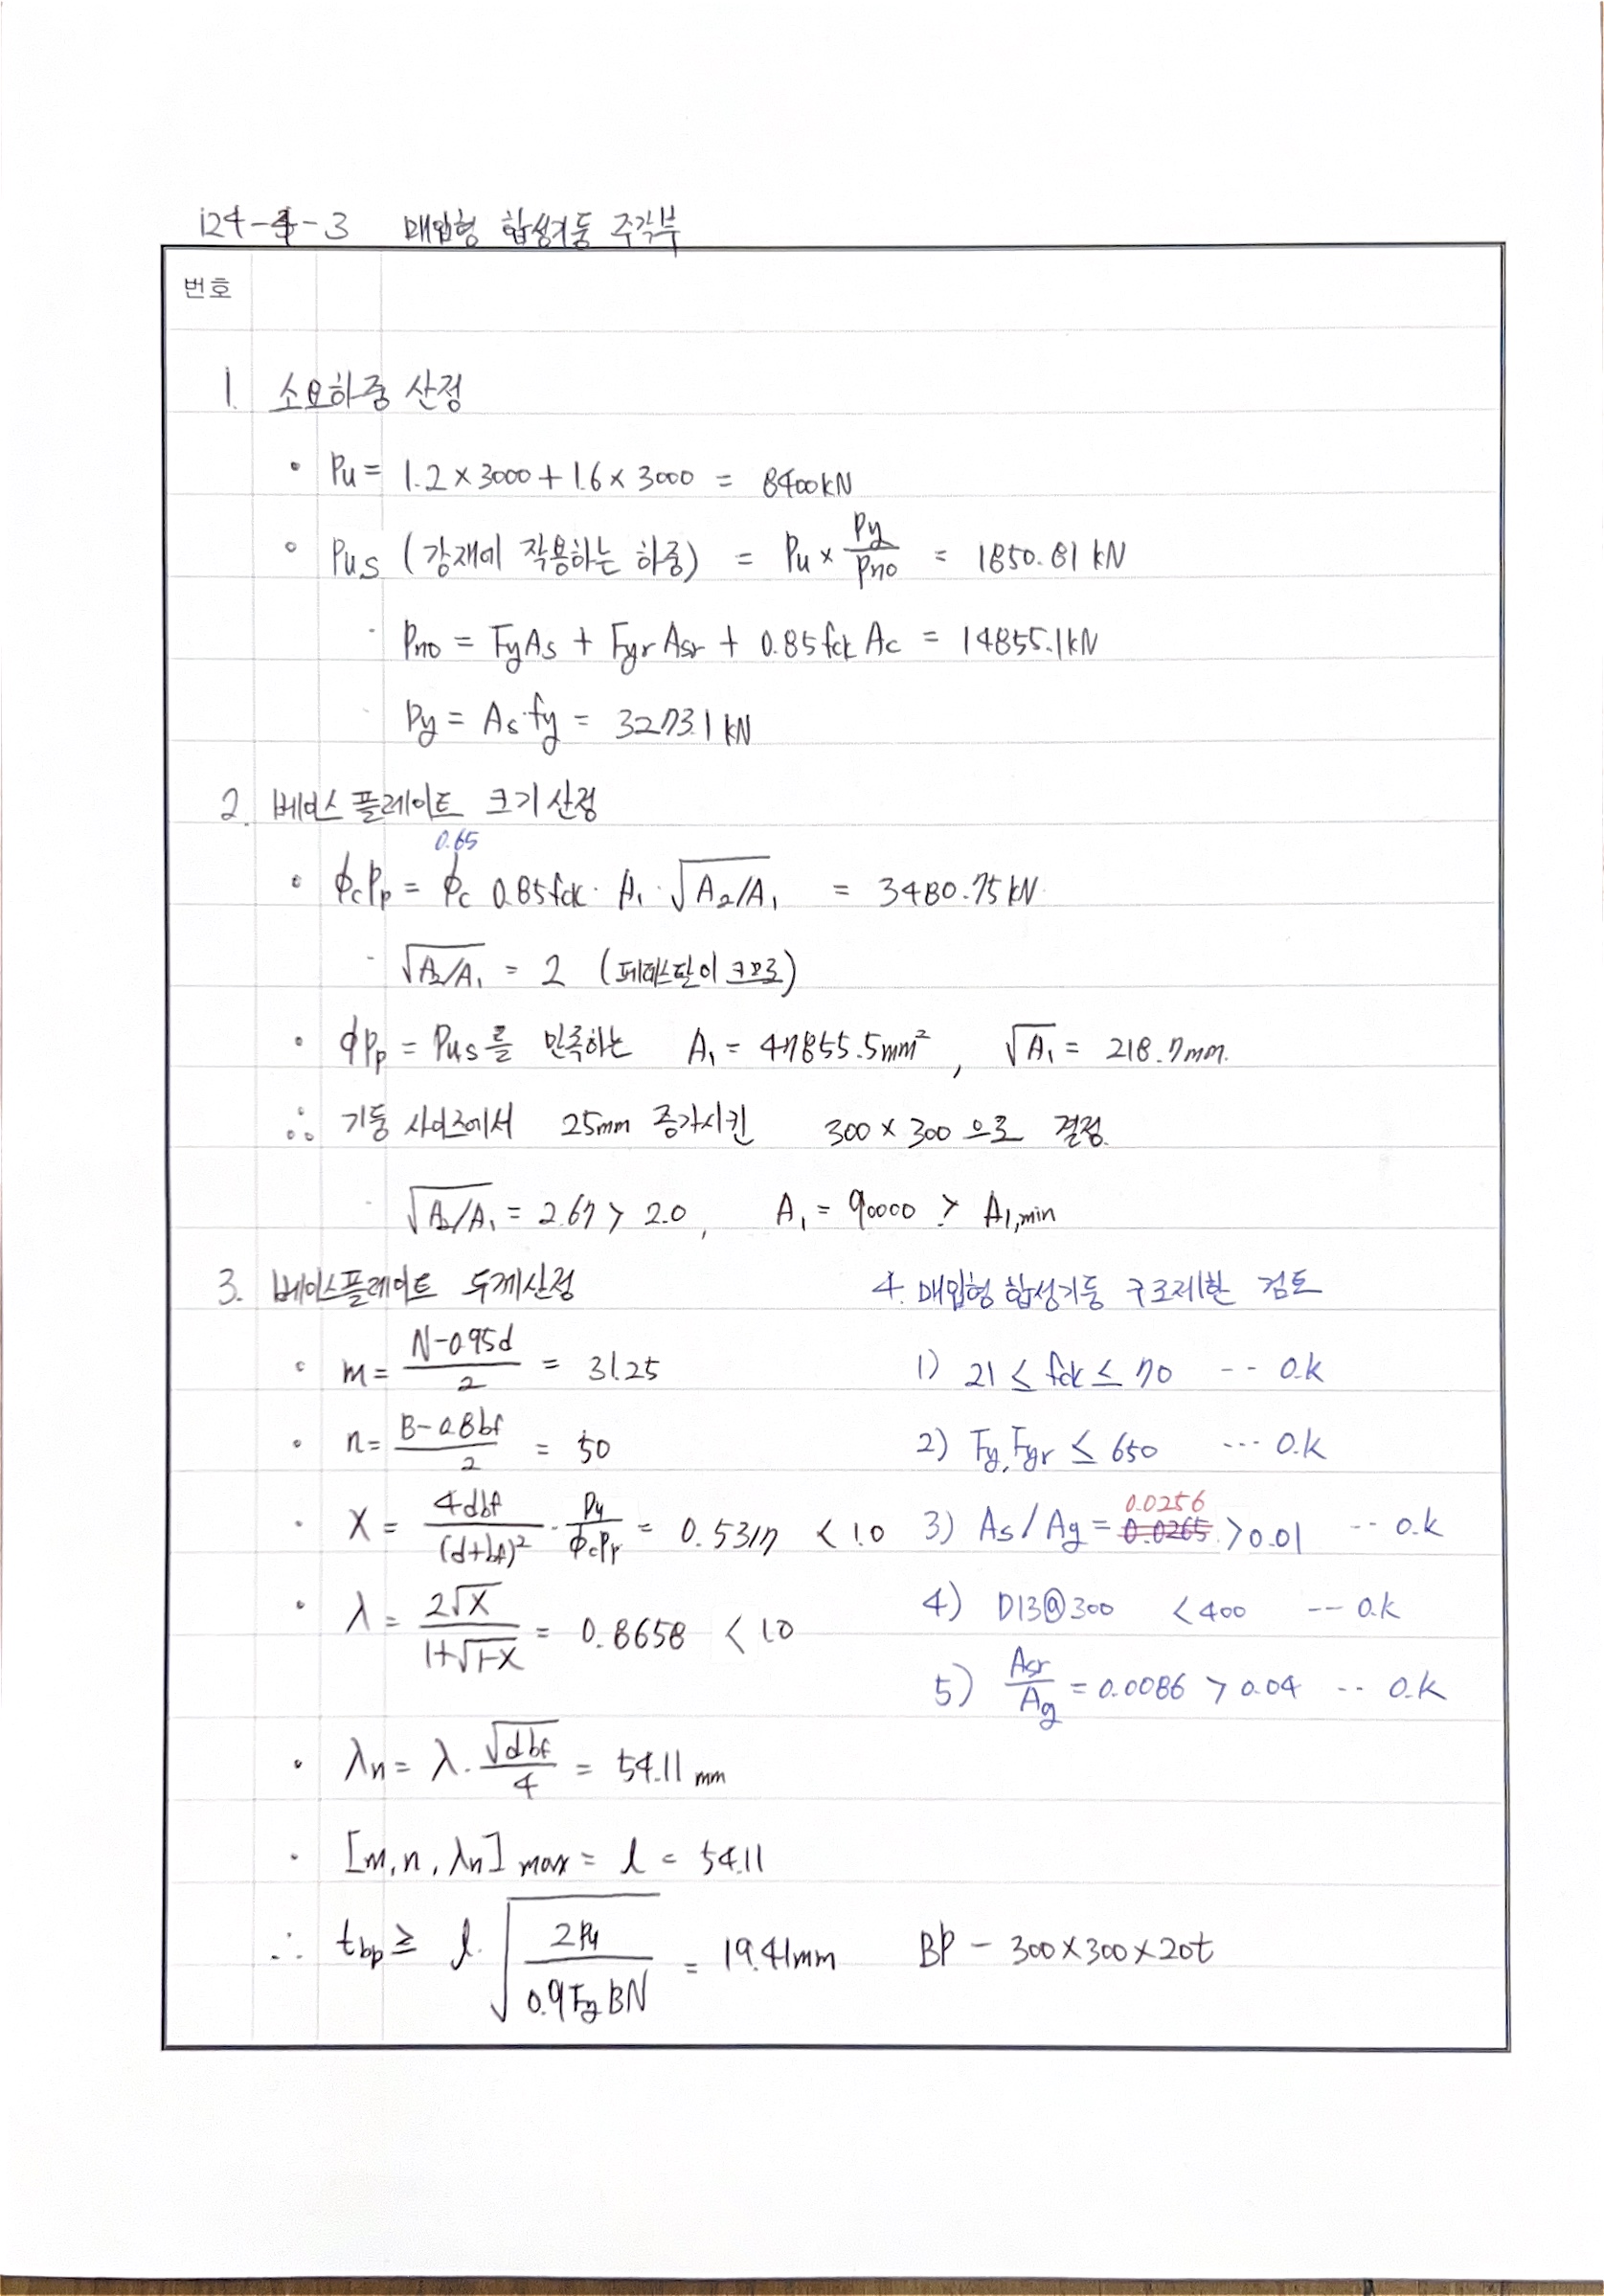 124-4-3 매입형 합성기둥 주각부
번호
1. 소요하중 산정
• Pu = 1.2 × 3000 + 1.6 × 3000 = 8400kN
• Pus (강재에 작용하는 하중) = Pu × Py/Pno = 1850.81 kN
· Pno = FyAs + Fyr Asr + 0.85 fck Ac = 14855.1kN
· Py = As·fy = 3273.1 kN
2. 베이스 플레이트 크기 산정
0.65
• ϕcPp = ϕc 0.85fck · A1 · √(A2/A1) = 3480.75 kN
- √(A2/A1) = 2 (페데스탈이 크므로)
• ϕPp = Pus를 만족하는 A1 = 47855.5mm², √A1 = 218.7mm.
∴ 기둥 사이즈에서 25mm 증가시킨 300 × 300 으로 결정.
- √(A2/A1) = 2.67 > 2.0, A1 = 90000 > A1,min
3. 베이스플레이트 두께산정
• m = (N-0.95d)/2 = 31.25
• n = (B-0.8bf)/2 = 50
· X = 4dbf/(d+bf)² · Pu/ϕcPp = 0.5317 < 1.0
• λ = 2√X/(1+√(1-X)) = 0.8658 < 1.0
• λn = λ · √(dbf)/4 = 54.11 mm
· [m, n, λn] max = l = 54.11
∴ tbp ≥ l · √(2Pu/(0.9Fy BN)) = 19.41mm BP - 300×300×20t
4. 매입형 합성기둥 구조제한 검토
1) 21 ≤ fck ≤ 70 -- O.k
2) Fy, Fyr ≤ 650 --- O.k
0.0256
3) As/Ag = 0.0265 > 0.01 -- O.k
4) D13@300 < 400 --- O.k
5) Asr/Ag = 0.0086 > 0.04 -- O.k